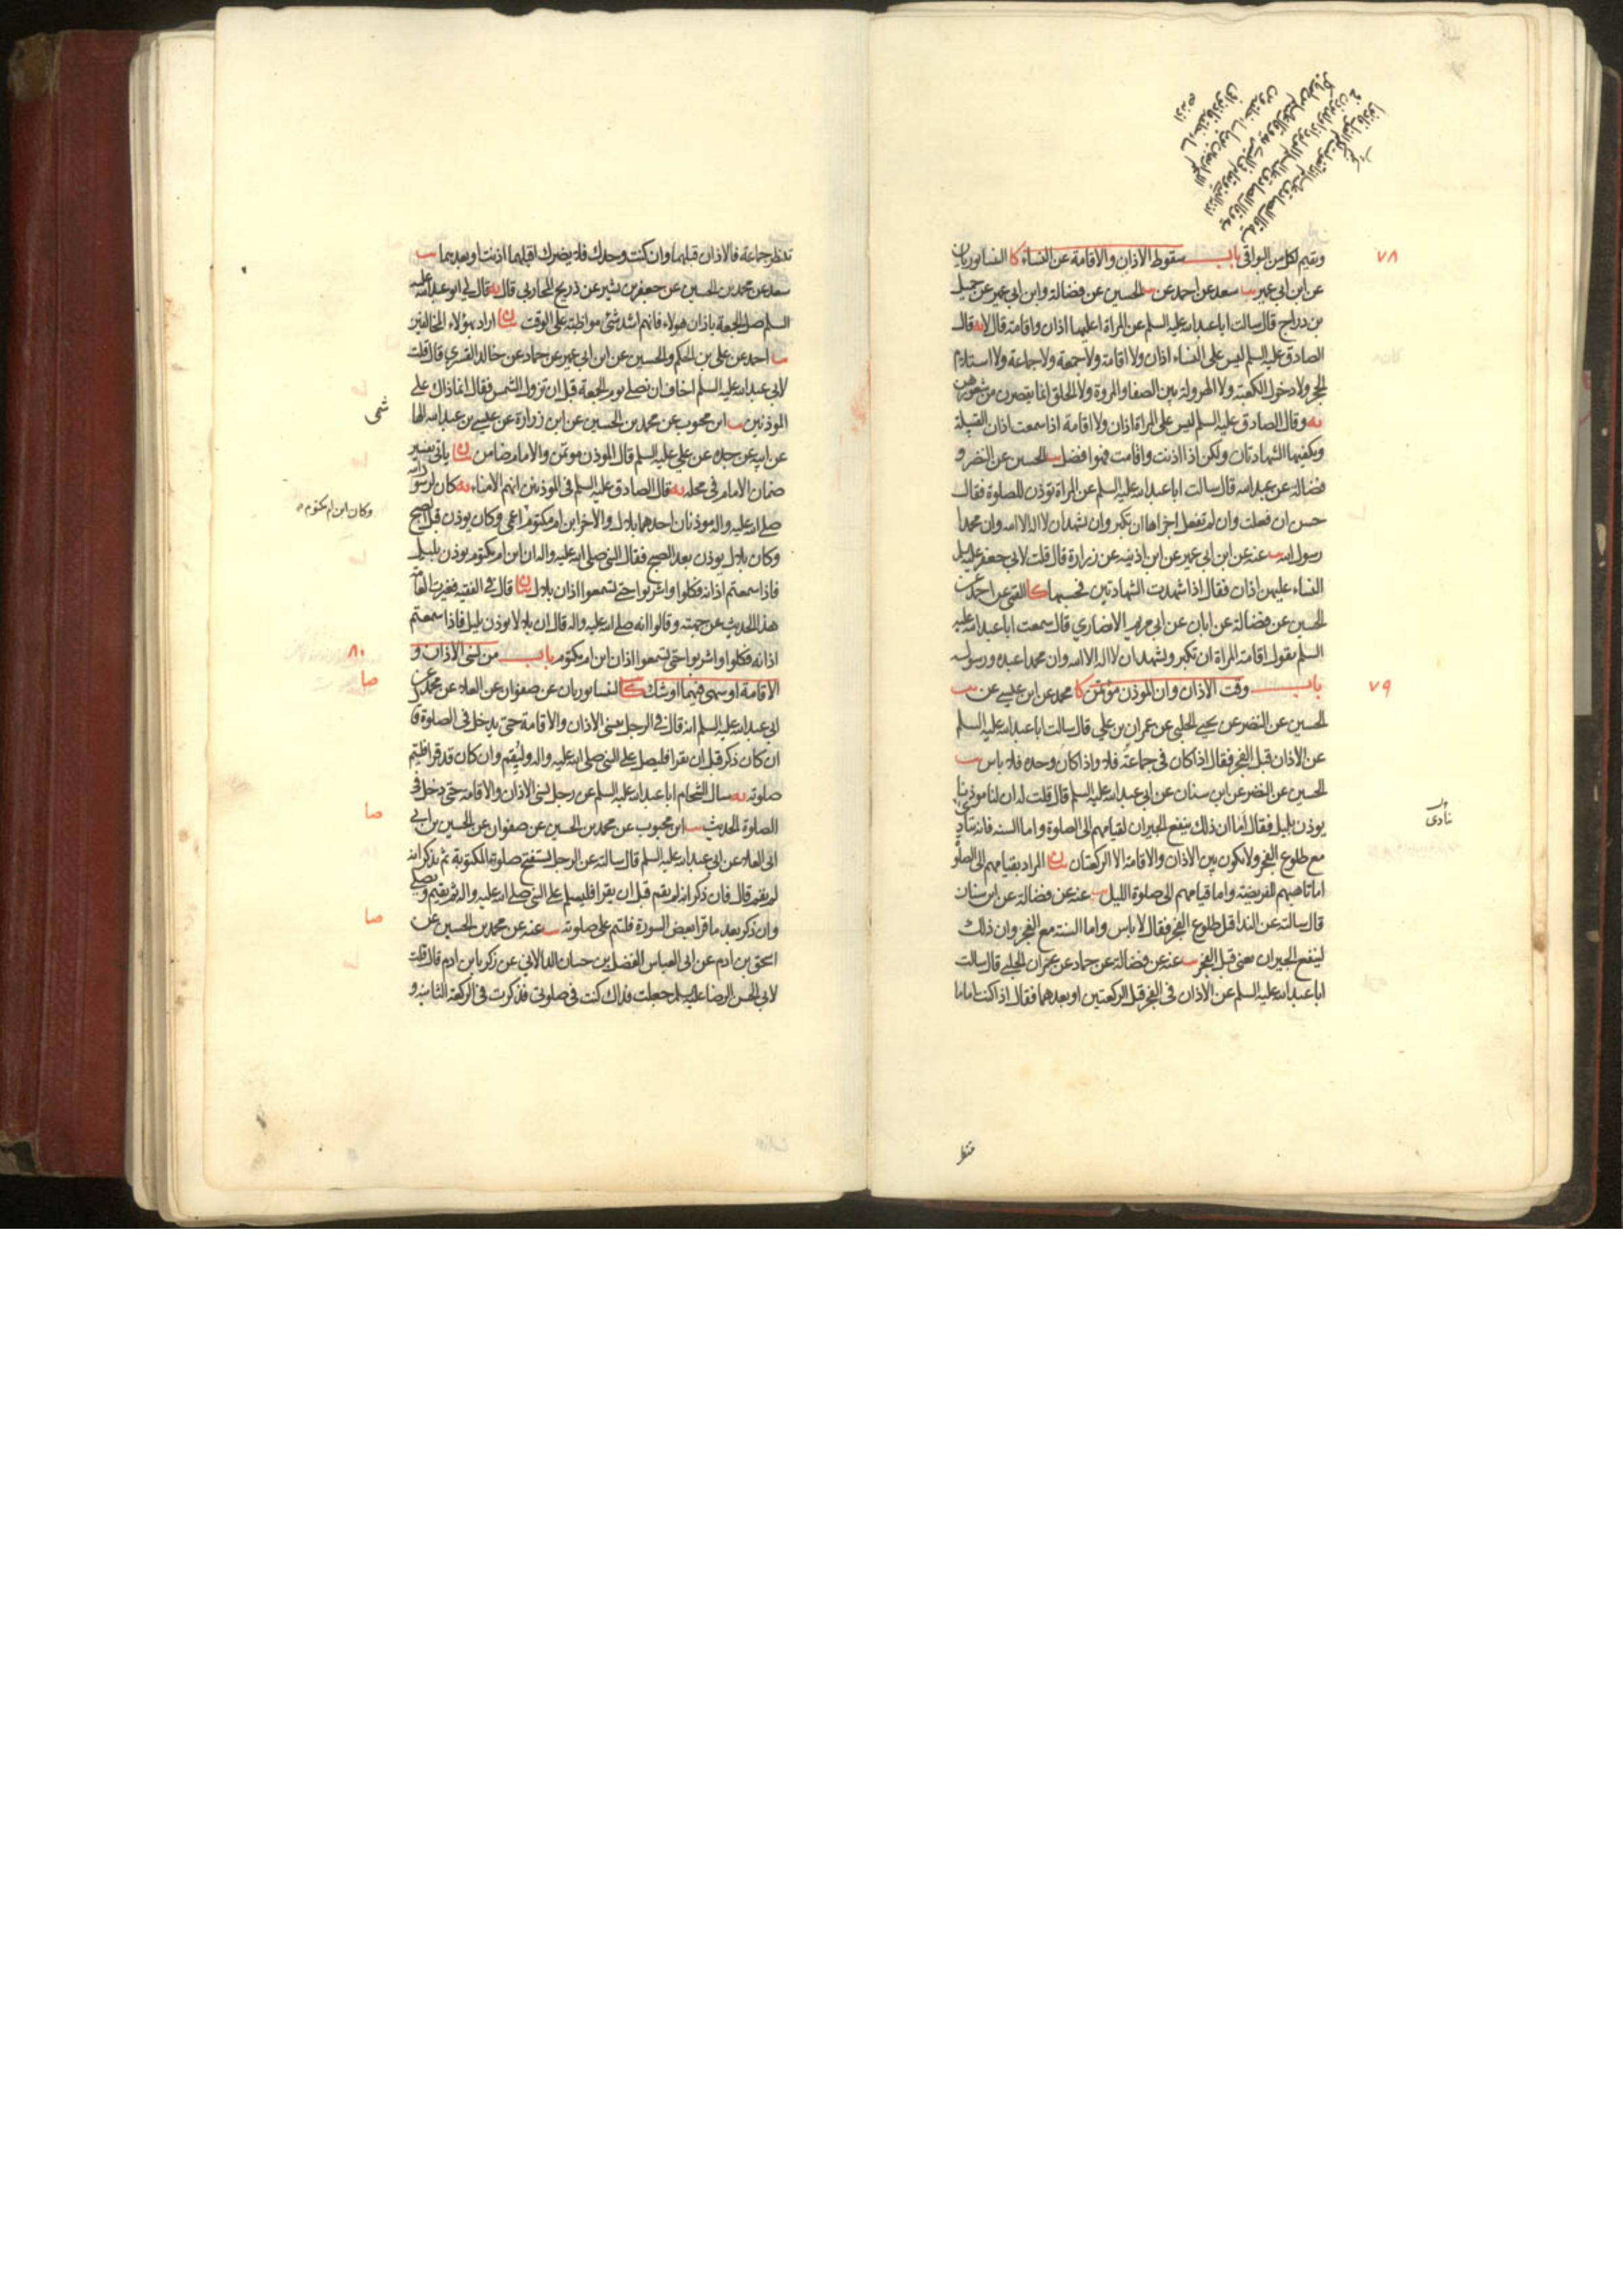 ويقيم لكل من البواقي باب سقوط الاذان والاقامة عن النساء كا النيسابوريان
عن ابن ابي عمير يب سعد عن احمد عن يب الحسين عن فضالة وابن ابي عمير عن جميل
بن دراج قال سالت ابا عبد الله عليه السلم عن المراة اعليها اذان واقامة قال لا يه قال
الصادق عليه السلم ليس على النساء اذان ولا اقامة ولا جمعة ولا جماعة ولا استلام
الحجر ولا دخول الكعبة ولا الهرولة بين الصفا والمروة ولا الحلق انما يقصرن من شعورهن
يه وقال الصادق عليه السلم ليس على المراة اذان ولا اقامة اذا سمعت اذان القبيلة
ويكفيها الشهادتان ولكن اذا اذنت واقامت فهو افضل يب الحسين عن النضر و
فضالة عن عبد الله قال سالت ابا عبد الله عليه السلم عن المراة تؤذن للصلوة فقال
حسن ان فعلت وان لم تفعل اجزاها ان تكبر وان تشهد ان لا اله الا الله وان محمدا
رسول الله يب عنه عن ابن ابي عمير عن ابن اذينه عن زرارة قال قلت لابي جعفر عليه السلم
النساء عليهن اذان فقال اذا شهدت الشهادتين فحسبها كا القمي عن احمد عن
الحسين عن فضالة عن ابان عن ابي مريم الانصاري قال سمعت ابا عبد الله عليه
السلم يقول اقامة المراة ان تكبر وتشهد ان لا اله الا الله وان محمدا عبده ورسوله
باب وقت الاذان وان الموذن مؤتمن كا محمد عن ابن عيسى عن يب
الحسين عن النضر عن يحيى الحلبي عن عمران بن علي قال سالت ابا عبد الله عليه السلم
عن الاذان قبل الفجر فقال اذا كان في جماعة فلا واذا كان وحده فلا باس يب
الحسين عن النضر عن ابن سنان عن ابي عبد الله عليه السلم قال قلت له ان لنا موذنا
يوذن بليل فقال اما ان ذلك ينفع الجيران لقيامهم الى الصلوة واما السنة فانه ينادي
مع طلوع الفجر ولا يكون بين الاذان والاقامة الا الركعتان بيان المراد بقيامهم الى الصلوة
اما تاهبهم للفريضة واما قيامهم الى صلوة الليل يب عنه عن فضالة عن ابن سنان
قال سالته عن الندا قبل طلوع الفجر فقال لا باس واما السنة مع الفجر وان ذلك
لينفع الجيران يعني قبل الفجر يب عنه عن فضالة عن حماد عن عمران الحلبي قال سالت
ابا عبد الله عليه السلم عن الاذان في الفجر قبل الركعتين او بعدهما فقال اذا كنت اماما
٧٨
٧٩
نادى
تنتظر
تنتظر جماعة فالاذان قبلهما وان كنت وحدك فلا يضرك اقبلهما اذنت او بعدهما يب
سعد عن محمد بن الحسين عن جعفر بن بشير عن ذريح المحاربي قال يه قال لي ابو عبد الله عليه
السلم صل الجمعة باذان هولاء فانهم اشد شئ مواظبة على الوقت بيان اراد بهؤلاء المخالفين
يب احمد عن علي بن الحكم والحسين عن ابن ابي عمير عن حماد عن خالد القسري قال قلت
لابي عبد الله عليه السلم اخاف ان نصلي يوم الجمعة قبل ان تزول الشمس فقال انما ذاك على
الموذنين يب ابن محبوب عن محمد بن الحسين عن ابن زرارة عن عيسى بن عبد الله الها
شمي
عن ابيه عن جده عن علي عليه السلم قال الموذن موتمن والامام ضامن بيان ياتي تفسير
ضمان الامام في محله يه قال الصادق عليه السلم في الموذنين انهم الامناء يه كان لرسول الله
صلى الله عليه واله موذنان احدهما بلال والاخر ابن ام مكتوم اعمى وكان يوذن قبل الصبح
وكان ابن ام مكتوم
وكان بلال يوذن بعد الصبح فقال النبي صلى الله عليه واله ان ابن ام مكتوم يوذن بليل
فاذا سمعتم اذانه فكلوا واشربوا حتى تسمعوا اذان بلال بيان قال في الفقيه فغيرت العامة
هذا الحديث عن جهته وقالوا انه صلى الله عليه واله قال ان بلالا يوذن بليل فاذا سمعتم
اذانه فكلوا واشربوا حتى تسمعوا اذان ابن ام مكتوم باب من نسي الاذان و
٨٠
الاقامة او سهى فيهما او شك كا النيسابوريان عن صفوان عن العلا عن محمد عن
صا
ابي عبد الله عليه السلم انه قال في الرجل ينسى الاذان والاقامة حتى يدخل في الصلوة قا
ان كان ذكر قبل ان يقرا فليصل على النبي صلى الله عليه واله وليقم وان كان قد قرا فليتم
صلوته يه سال الشحام ابا عبد الله عليه السلم عن رجل نسي الاذان والاقامة حتى دخل في
الصلوة الحديث يب ابن محبوب عن محمد بن الحسين عن صفوان عن الحسين بن ابي
صا
العلا عن ابي عبد الله عليه السلم قال سالته عن الرجل يستفتح صلوة المكتوبة ثم يذكر انه
لم يقم قال فان ذكر انه لم يقم قبل ان يقرا فليسلم على النبي صلى الله عليه واله ثم يقيم ويصلي
وان ذكر بعد ما قرا بعض السورة فليتم على صلوته يب عنه عن محمد بن الحسين عن
صا
اسحق بن ادم عن ابي العباس الفضل بن حسان الدالاني عن زكريا بن ادم قال قلت
لابي الحسن الرضا عليه السلم جعلت فداك كنت في صلوتي فذكرت في الركعة الثانية و